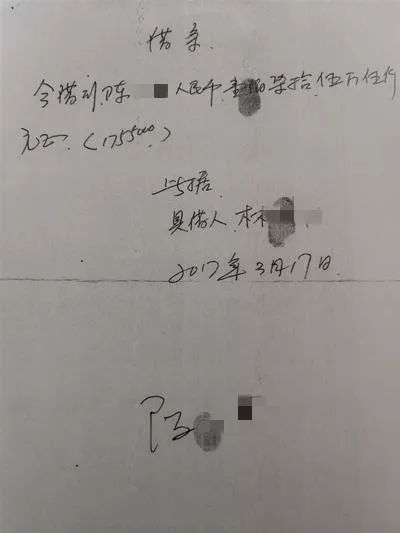 借条
今借到陈 人民币 壹佰柒拾伍万伍仟
元正.(1755000)
此据
具借人 林
2017年3月17日.